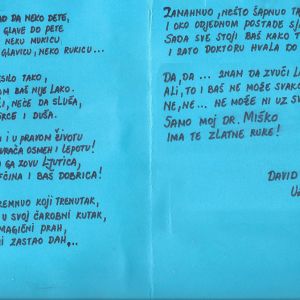 DA NEKO DETE,
GLAVE DO PETE
NEKU NUKICU
GLAVICU, NEKO RUKICU...
SILO TAKO,
BAŠ NIJE LAKO.
NEĆE DA SLUŠA,
SRCE I DUŠA.
I U PRAVOM ŽIVOTU
OSMEH I LEPOTU!
GA ZOVU LJUTICA,
I BAŠ DOBRICA!
KOJI TRENUTAK,
U SVOJ ČAROBNI KUTAK,
MAGIČNI PRAH,
ZASTAO DAH,..
ZANAHNUO, NEŠTO ŠAPNUO
I OKO ODJEDNOM POSTADE
SADA SVE STOJI BAŠ KAKO
I ZATO DOKTORU HVALA DO
DA, DA... ZNAM DA ZVUČI
ALI, TO I BAŠ NE MOŽE SVAKO
NE, NE... NE MOŽE NI UZ
SAMO MOJ DR. MIŠKO
IMA TE ZLATNE RUKE!
DAVID